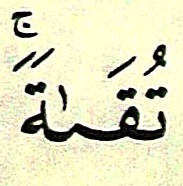 تُقَىٰةًۚ